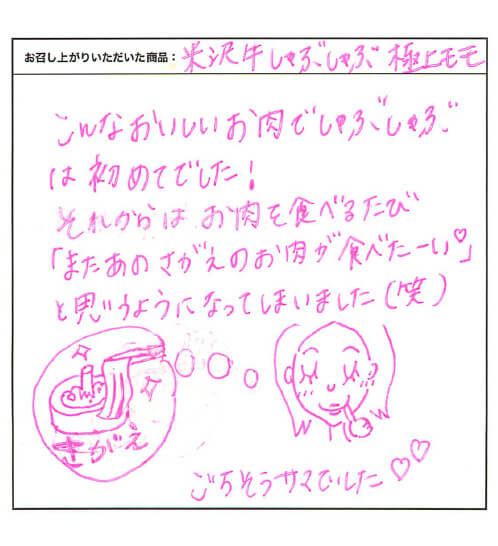 お召し上がりいただいた商品：米沢牛しゃぶしゃぶ 極上モモ
こんなおいしいお肉でしゃぶしゃぶ
は初めてでした！
それからは お肉を食べるたび
「またあのさがえのお肉が食べたーい♡」
と思うようになってしまいました（笑）
さがえ
ごちそうサマでした♡♡